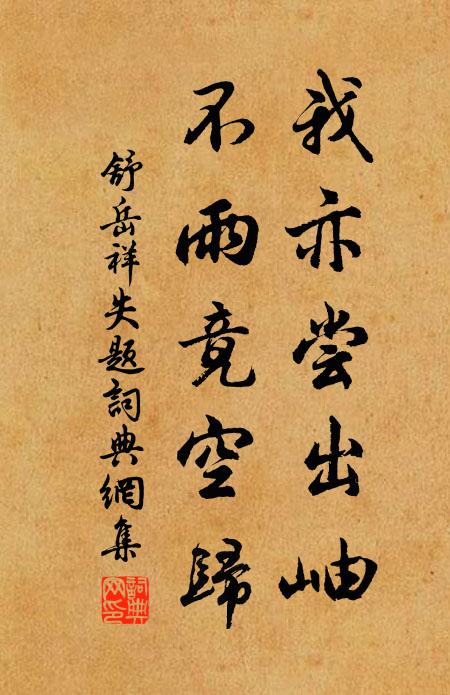 我亦尝出岫
不雨竟空歸
舒岳祥失题詞典網集
詞典网印